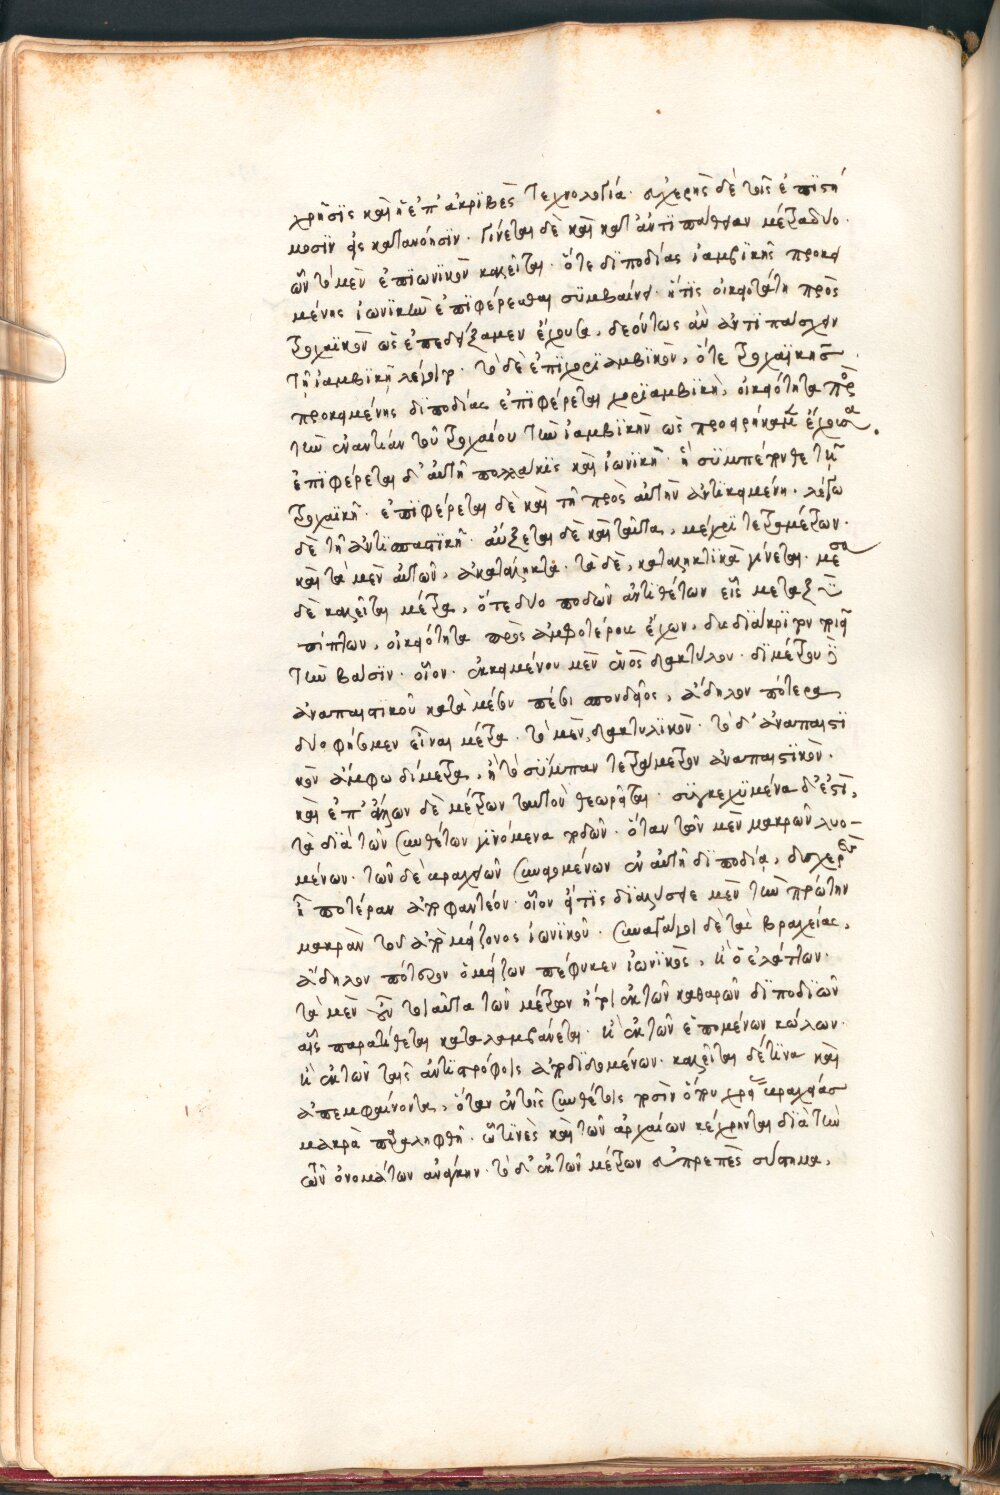 χρῆσϊς καὶ ἡ ἐπ' ἀκρϊβὲς τεχνολογία· εὐχερὴς δὲ τοῖς ἐπϊστή
μοσϊν εἰς κατανόησϊν· Γίνεται δὲ καὶ κατ' ἀντϊπάθειαν μέτρα δύο·
ὧν τὸ μὲν ἐπϊωνϊκὸν καλεῖται· ὅτε δϊποδίας ἰαμβϊκῆς προκει
μένης ἰωνϊκὴν ἐπϊφέρεσθαι συμβαίνει· ἥτϊς οἰκειοτάτη πρὸς
τροχαϊκὸν ὡς ἐπεδείξαμεν ἔχουσα, δεόντως ἂν ἀντϊπάσχειν
τῇ ἰαμβϊκῇ λέγοιτο· τὸ δὲ ἐπϊχορϊαμβϊκὸν, ὅτε τροχαϊκῆς
προκειμένης δϊποδίας ἐπϊφέρεται χορϊαμβϊκὴ, οἰκειότητα πρὸς
τὴν ἐναντίαν τοῦ τροχαίου τὴν ἰαμβϊκὴν ὡς προειρήκαμεν ἔχουσα.
ἐπϊφέρεται δ' αὐτῇ πολλάκϊς καὶ ἰωνϊκὴ· ἣ συμπέπονθε τῇ
τροχαϊκῇ· ἐπϊφέρεται δὲ καὶ τῇ πρὸς αὐτὴν ἀντϊκειμένῃ· λέγω
δὲ τῇ ἀντϊσπαστϊκῇ· αὔξεται δὲ καὶ ταῦτα, μέχρϊ τετραμέτρων·
καὶ τὰ μὲν αὐτῶν, ἀκατάληκτα· τὰ δὲ, καταληκτϊκὰ γίνεται· μέσα
δὲ καλεῖται μέτρα, ὅτε δύο ποδῶν ἀντϊθέτων εἷς μεταξὺ
πίπτων, οἰκειότητα πρὸς ἀμφοτέρους ἔχων, δυσδϊάκρϊτον ποιεῖ
τὴν βάσϊν· οἷον· ἐκκειμένου μὲν ἑνὸς δακτύλου· δϊμέτρου δὲ
ἀναπαιστϊκοῦ κατὰ μέσον πέσοι σπονδεῖος, ἄδηλον πότερα
δύο φήσομεν εἶναι μέτρα· τὸ μὲν, δακτυλϊκὸν· τὸ δ' ἀναπαιστϊ
κὸν ἄμφω δίμετρα, ἢ τὸ σύμπαν τετράμετρον ἀναπαιστϊκὸν·
καὶ ἐπ' ἄλλων δὲ μέτρων ταυτὸν θεωρεῖται· συγκεχυμένα δ' ἐστὶ,
τὰ δϊὰ τῶν συνθέτων γϊνόμενα ποδῶν· ὅταν τῶν μὲν μακρῶν λυο-
μένων· τῶν δὲ βραχειῶν συναγομένων ἐν αὐτῇ δϊποδίᾳ, δυσχερὲς
ᾖ ποτέραν ἀποφαντέον· οἷον εἴ τϊς δϊαλύσειε μὲν τὴν πρώτην
μακρὰν τοῦ ἀπὸ μείζονος ἰωνϊκοῦ· συναγάγοι δὲ τὰς βραχείας,
ἄδηλον πότερον ὁ μείζων πέφυκεν ἰωνϊκὸς, ἢ ὁ ἐλάττων·
τὰ μὲν οὖν τοιαῦτα τῶν μέτρων ἤτοι ἐκ τῶν καθαρῶν δϊποδϊῶν
αἷς παρατίθεται καταλαμβάνεται· ἢ ἐκ τῶν ἑπομένων κώλων·
ἢ ἐκ τῶν ταῖς ἀντϊστρόφοις ἀποδϊδομένων· καλεῖται δέ τϊνα καὶ
ἀπεμφαίνοντα, ὅταν ἐν τοῖς συνθέτοις ποσὶν ὅπου χρὴ βραχείας
μακρὰ παραληφθῇ· ᾧτϊνὲς καὶ τῶν ἀρχαίων κέχρηνται δϊὰ τὴν
τῶν ὀνομάτων ἀνάγκην· τὸ δ' ἐκ τῶν μέτρων εὐπρεπὲς σύστημα,